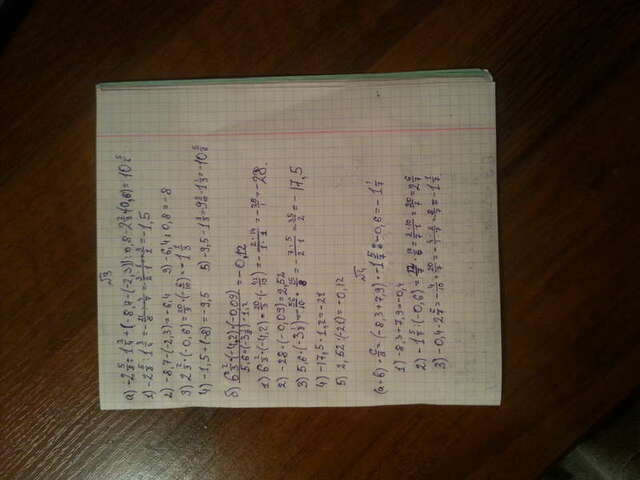 √3
а) -2 5/8 : 1 3/4 + (-8,7-(-2,3)) : 0,8 - 2 2/3 · (0,6) = 10 5/6
1) -2 5/8 : 1 3/4 = -21/8 · 4/7 = -3·1/2·1 = -3/2 = -1,5
2) -8,7-(-2,3)=-6,4 3) -6,4 : 0,8 = -8
3) 2 2/3 · (-0,6) = 20/3 · (-6/10) = -1 3/3
4) -1,5+(-8)=-9,5 5) -9,5-1 1/3=9 3/6-1 1/3=-10 5/6
б) 6 2/3·(-4,2)·(-0,09)
5,6·(-3 1/8)·1,2 =-0,12
1) 6 2/3·(-4,2)=20/3·(-42/10)=-2·14/1·1=-28/1=-28.
2) -28·(-0,09)=2,52
3) 5,6·(-3 1/8)=-56/10·25/8=-7·5/2·1=35/2=-17,5
4) -17,5·1,2=-21
5) 2,52:(-21)=-0,12
√4
(а+в) : c/d = (-8,3+7,9) · -1 5/7 : -0,6 = -1 1/7
1) -8,3+7,9=-0,4
2) -1 5/7:(-0,6)=12/7·10/6=2·10/7·1=20/7=2 6/7
3) -0,4·2 6/7=-4/10·20/7=-4·2/7=-8/7=-1 1/7